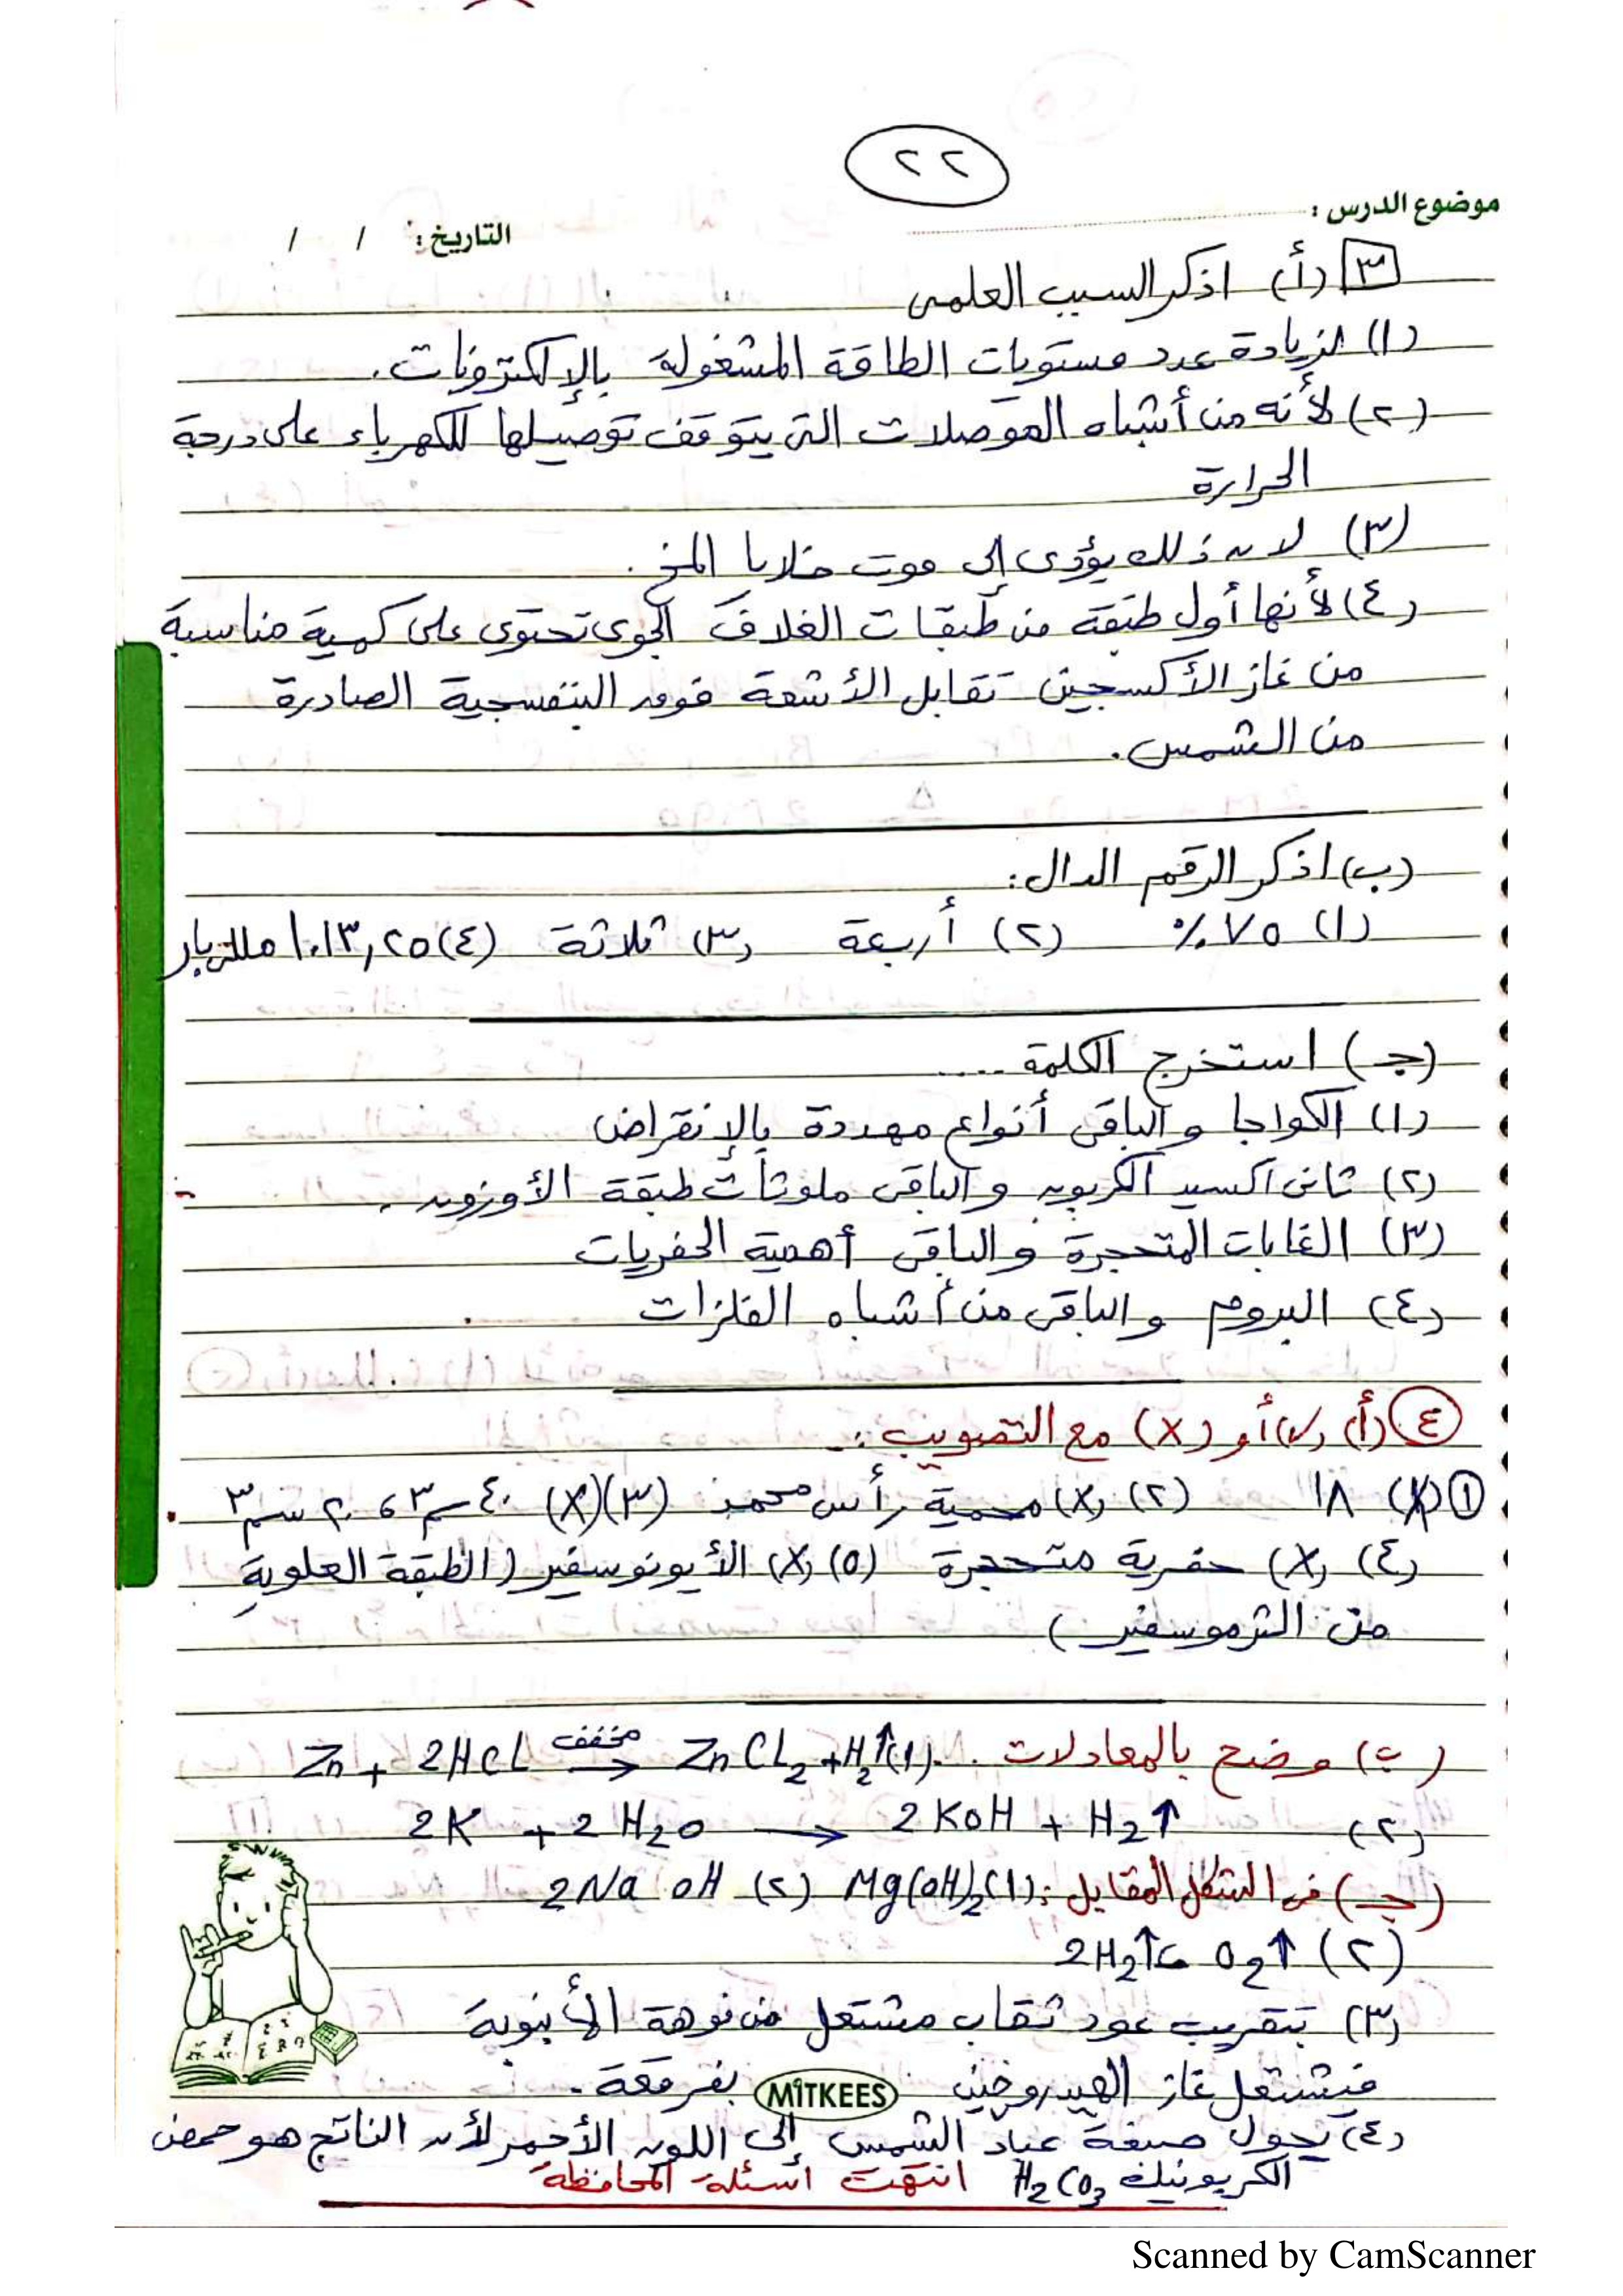 ٢٢
موضوع الدرس :
التاريخ : / /
٣ (أ) اذكر السبب العلمى
(١) لزيادة عدد مستويات الطاقة المشغولة بالإلكترونات.
(٢) لأنه من أشباه الموصلات التى يتوقف توصيلها للكهرباء على درجة
الحرارة
(٣) لان ذلك يؤدى إلى موت خلايا المخ .
(٤) لأنها أول طبقة من طبقات الغلاف الجوى تحتوى على كمية مناسبة
من غاز الأكسجين تقابل الأشعة فوق البنفسجية الصادرة
من الشمس .
(ب) اذكر الرقم الدال:
(١) ٧٥ ٪ (٢) أربعة (٣) ثلاثة (٤) ١٠١٣,٢٥ مللى بار
(جـ) استخرج الكلمة .....
(١) الكواجا والباقى أنواع مهددة بالإنقراض
(٢) ثانى اكسيد الكربون والباقى ملوثات طبقة الأوزون .
(٣) الغابات المتحجرة والباقى أهمية الحفريات
(٤) البروم والباقى من أشباه الفلزات
٤ (أ) (✓) أو (X) مع التصويب :-
١ (X) ١٨ (٢) (X) محمية رأس محمد (٣) (X) ٤٠ سم٣ ، ٢٠ سم٣
(٤) (X) حفرية متحجرة (٥) (X) الأيونوسفير (الطبقة العلوية
من الثرموسفير)
(ب) وضح بالمعادلات .. (١) Zn + 2HCl مخفف → ZnCl2 + H2↑
(٢) 2K + 2H2O → 2KOH + H2↑
(جـ) فى الشكل المقابل : (١) Mg(OH)2 (٢) 2NaOH
(٢) O2↑ ، 2H2↑
(٣) بتقريب عود ثقاب مشتعل من فوهة الأنبوبة
فيشتعل غاز الهيدروجين بفرقعة .
MITKEES
(٤) يحول صبغة عباد الشمس إلى اللون الأحمر لأن الناتج هو حمض
الكربونيك H2CO3 انتهت أسئلة المحافظة
Scanned by CamScanner